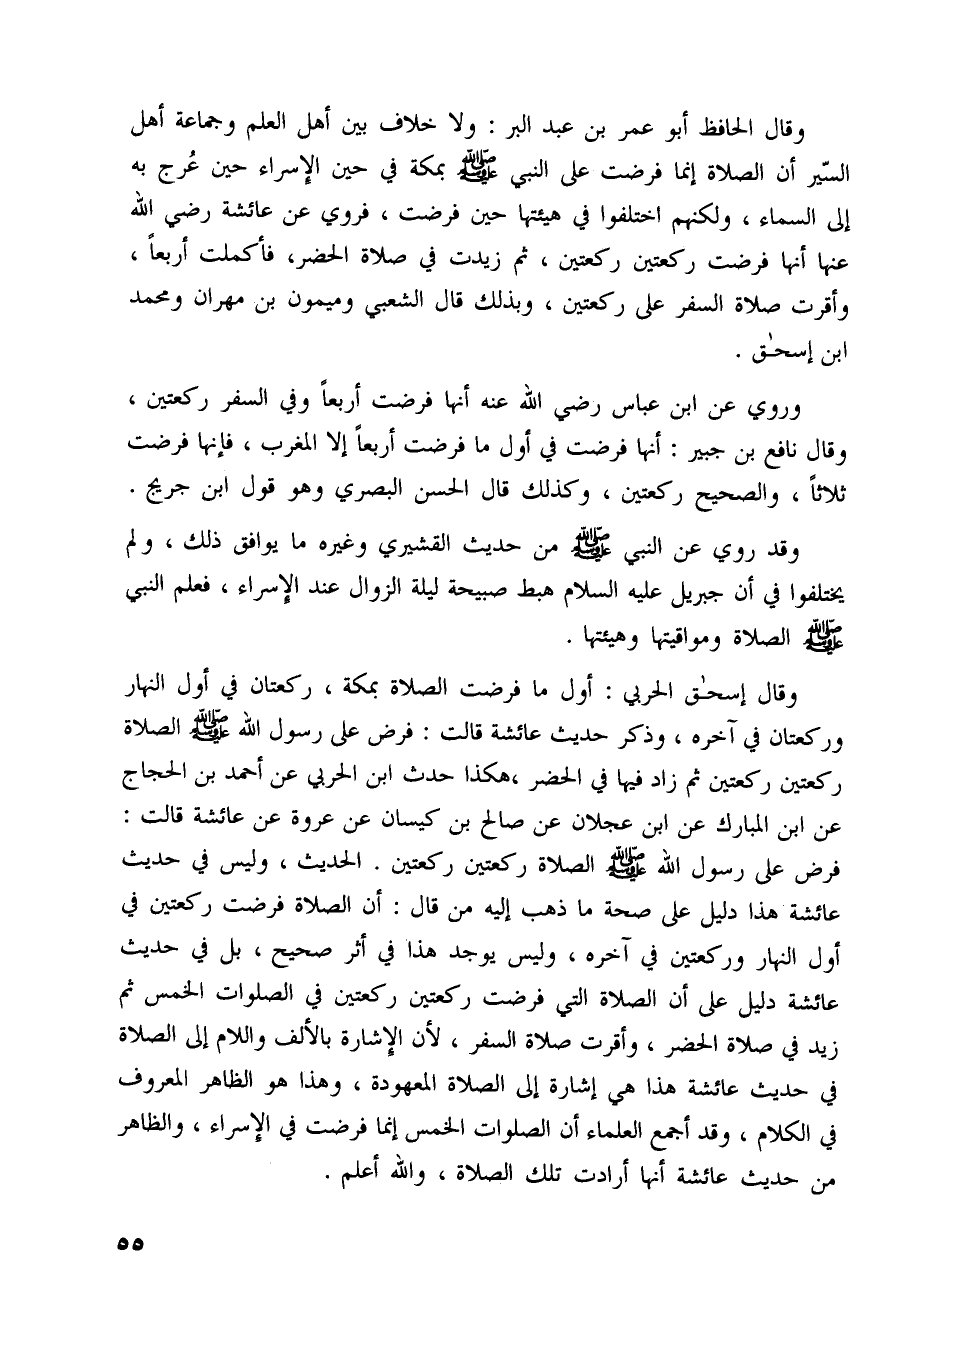 وقال الحافظ أبو عمر بن عبد البر : ولا خلاف بين أهل العلم وجماعة أهل
السّير أن الصلاة إنما فرضت على النبي ﷺ بمكة في حين الإسراء حين عُرج به
إلى السماء ، ولكنهم اختلفوا في هيئتها حين فرضت ، فروي عن عائشة رضي الله
عنها أنها فرضت ركعتين ركعتين ، ثم زيدت في صلاة الحضر، فأكملت أربعاً ،
وأقرت صلاة السفر على ركعتين ، وبذلك قال الشعبي وميمون بن مهران ومحمد
ابن إسحـٰق .
وروي عن ابن عباس رضي الله عنه أنها فرضت أربعاً وفي السفر ركعتين ،
وقال نافع بن جبير : أنها فرضت في أول ما فرضت أربعاً إلا المغرب ، فإنها فرضت
ثلاثاً ، والصحيح ركعتين ، وكذلك قال الحسن البصري وهو قول ابن جريج .
وقد روي عن النبي ﷺ من حديث القشيري وغيره ما يوافق ذلك ، ولم
يختلفوا في أن جبريل عليه السلام هبط صبيحة ليلة الزوال عند الإسراء ، فعلم النبي
ﷺ الصلاة ومواقيتها وهيئتها .
وقال إسحـٰق الحربي : أول ما فرضت الصلاة بمكة ، ركعتان في أول النهار
وركعتان في آخره ، وذكر حديث عائشة قالت : فرض على رسول الله ﷺ الصلاة
ركعتين ركعتين ثم زاد فيها في الحضر ،هكذا حدث ابن الحربي عن أحمد بن الحجاج
عن ابن المبارك عن ابن عجلان عن صالح بن كيسان عن عروة عن عائشة قالت :
فرض على رسول الله ﷺ الصلاة ركعتين ركعتين . الحديث ، وليس في حديث
عائشة هذا دليل على صحة ما ذهب إليه من قال : أن الصلاة فرضت ركعتين في
أول النهار وركعتين في آخره ، وليس يوجد هذا في أثر صحيح ، بل في حديث
عائشة دليل على أن الصلاة التي فرضت ركعتين ركعتين في الصلوات الخمس ثم
زيد في صلاة الحضر ، وأقرت صلاة السفر ، لأن الإشارة بالألف واللام إلى الصلاة
في حديث عائشة هذا هي إشارة إلى الصلاة المعهودة ، وهذا هو الظاهر المعروف
في الكلام ، وقد أجمع العلماء أن الصلوات الخمس إنما فرضت في الإسراء ، والظاهر
من حديث عائشة أنها أرادت تلك الصلاة ، والله أعلم .
٥٥